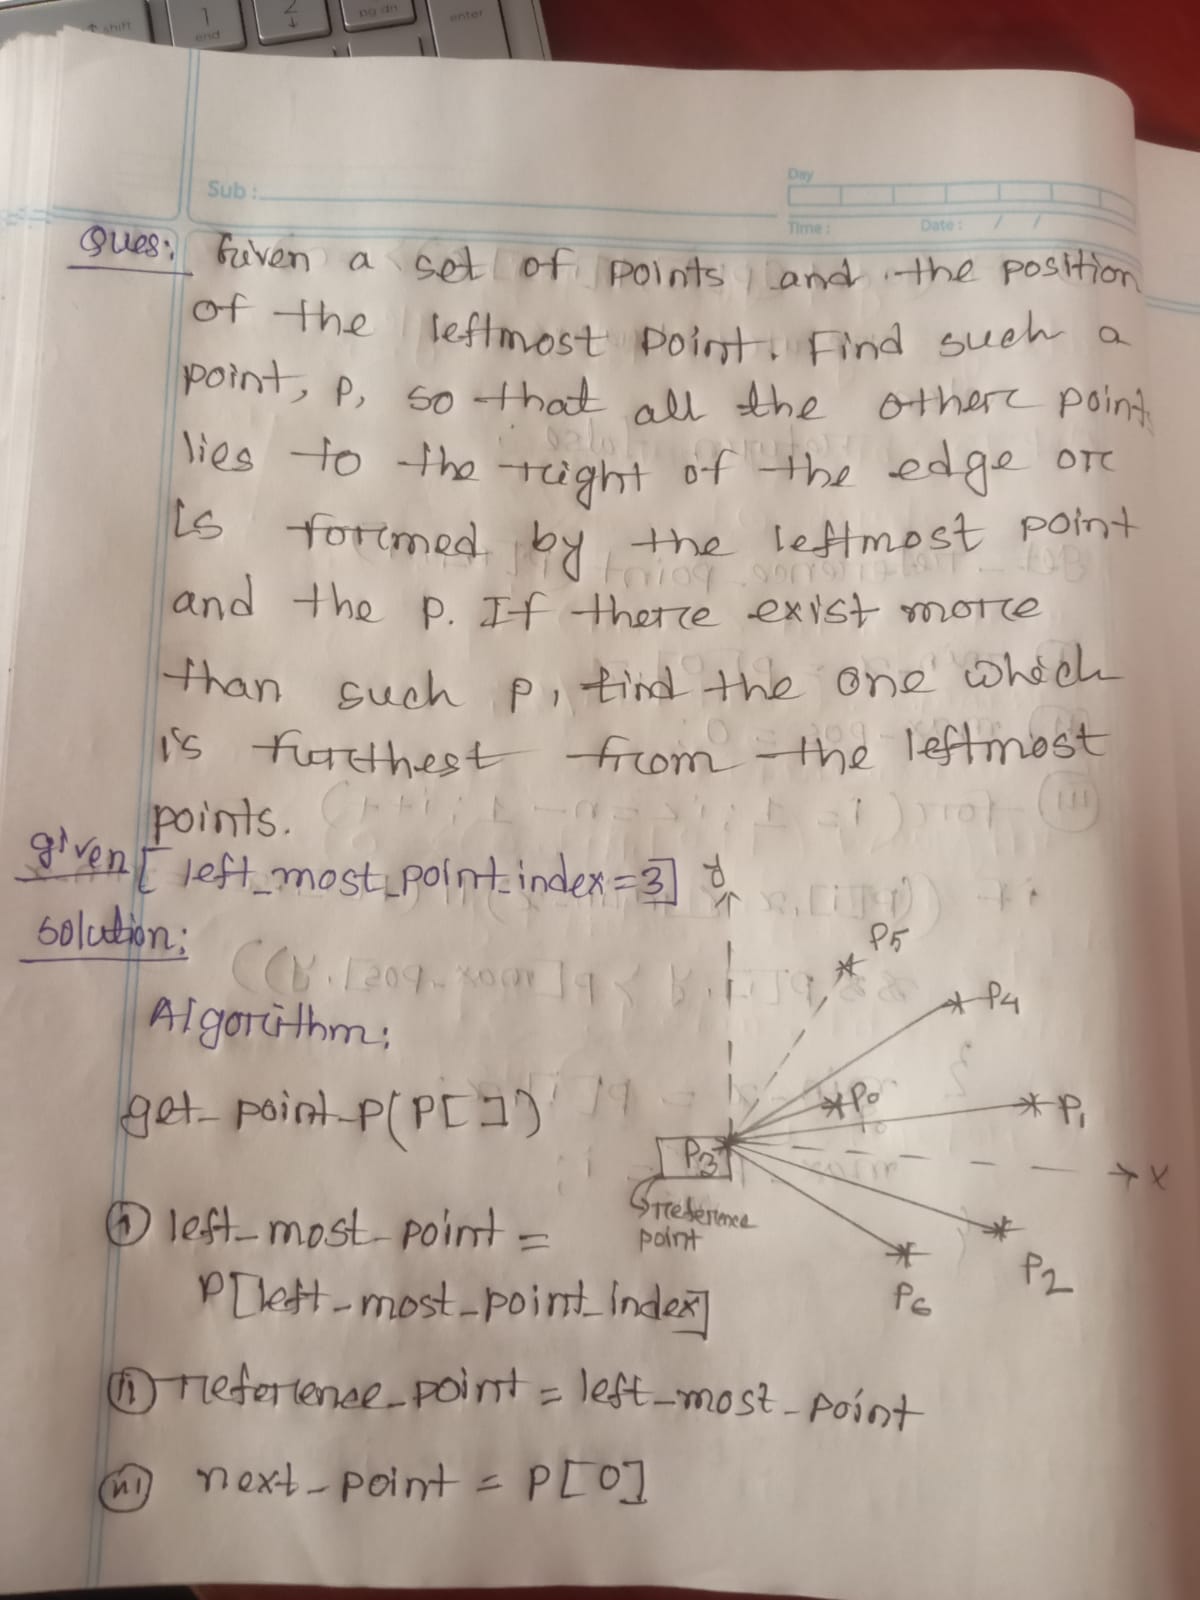 shift
1
end
2
↓
pg dn
enter
Sub :
Day
Time :
Date : / /
Ques: Given a set of points, and the position
of the leftmost point. Find such a
point, P, so that all the other points
lies to the right of the edge or
is formed by the leftmost point
and the P. If there exist more
than such P, find the one which
is furthest from the leftmost
points.
given [left_most_point_index=3]
solution:
Algorithm:
get_point_P(P[])
y
P5
P4
P0
P1
P3
x
reference
point
P2
P6
(i) left_most_point =
P[left_most_point_index]
(ii) reference_point = left_most_point
(iii) next_point = P[0]